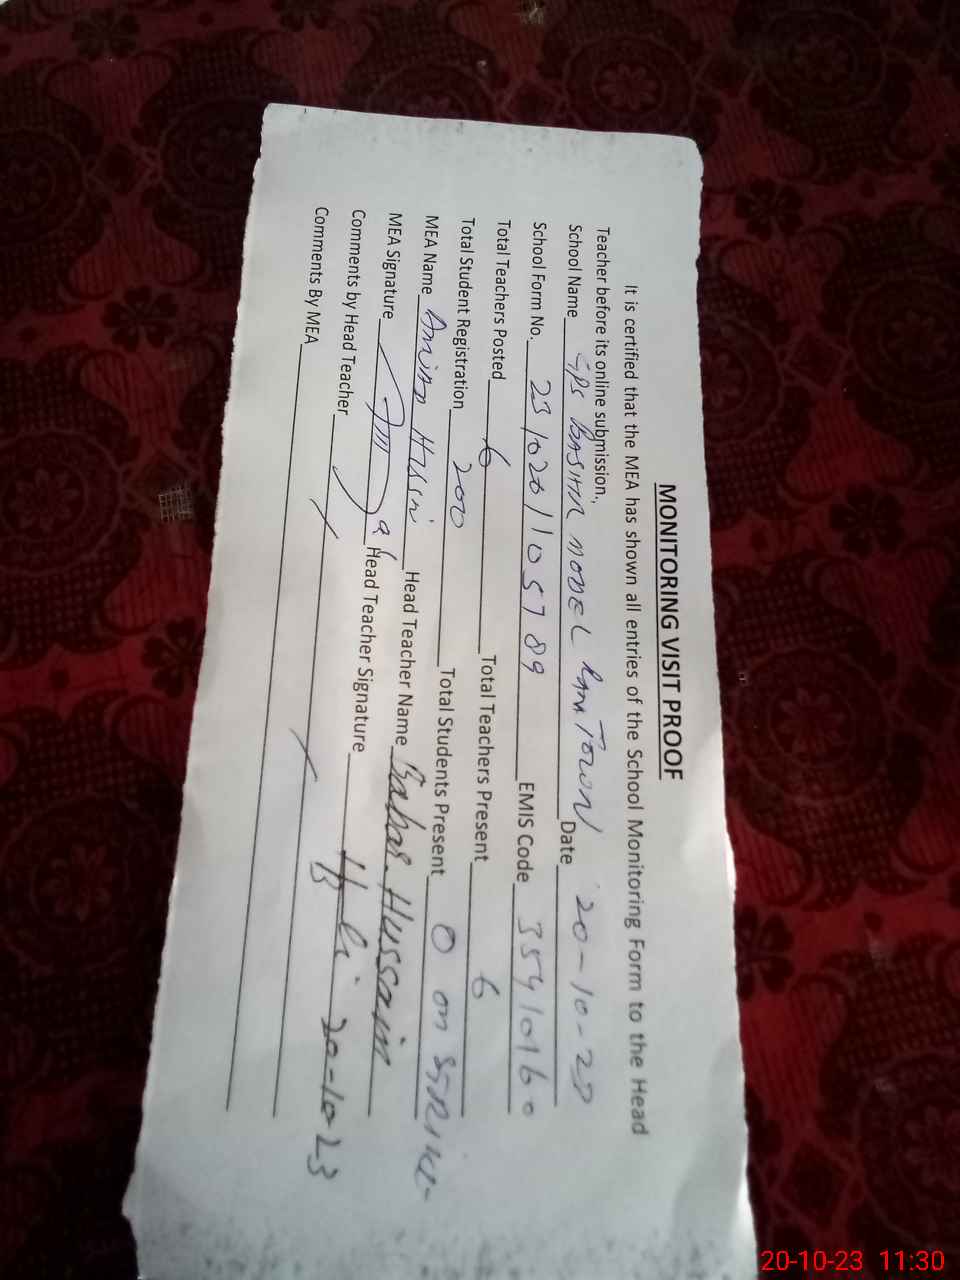 MONITORING VISIT PROOF
It is certified that the MEA has shown all entries of the School Monitoring Form to the Head
Teacher before its online submission.,
School Name GPS BASHIR MODEL RAM TOWN Date 20-10-23
School Form No. 2310201105789 EMIS Code 35410160
Total Teachers Posted 6 Total Teachers Present 6
Total Student Registration 200 Total Students Present 0 on STRIKE
MEA Name Husin Head Teacher Name Babar Hussain
MEA Signature Head Teacher Signature
Comments by Head Teacher 20-10-23
Comments By MEA
20-10-23 11:30